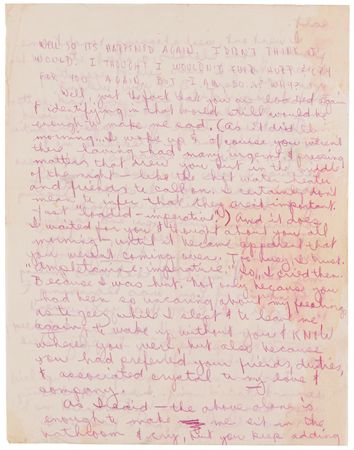 WELL SO ITS HAPPENED AGAIN. I DIDN'T THINK IT
WOULD. I THOUGHT I WOULDN'T EVER HURT & CRY
FOR YOU AGAIN. BUT I AM SO AS WHY?
Well just the fact that you are loaded again
& identifying in that world still would be
enough to make me sad. (As it did this
morning. I woke up & of course you weren't
there - having had many urgent & pressing
matters that drew you out in the middle
of the night - like the shit material
and friends to call on. I certainly don't
mean to infer that they aren't important.
Just "loaded - imperative") And it does
I waited for you & thought about you all
morning - until it became apparent that
you weren't coming over. Too busy I must.
"Amphetamine imperative." So, I cried then.
Because I was hurt. Not only because you
had been so uncaring about my feelings
as to go while I slept & to leave me
again to wake up without you & KNOW
where you were, but also because
you had preferred your friends, duties,
& associated crystal to my love &
company.
As I said - the above alone is
enough to make me sit in the
bathroom & cry, but you keep adding